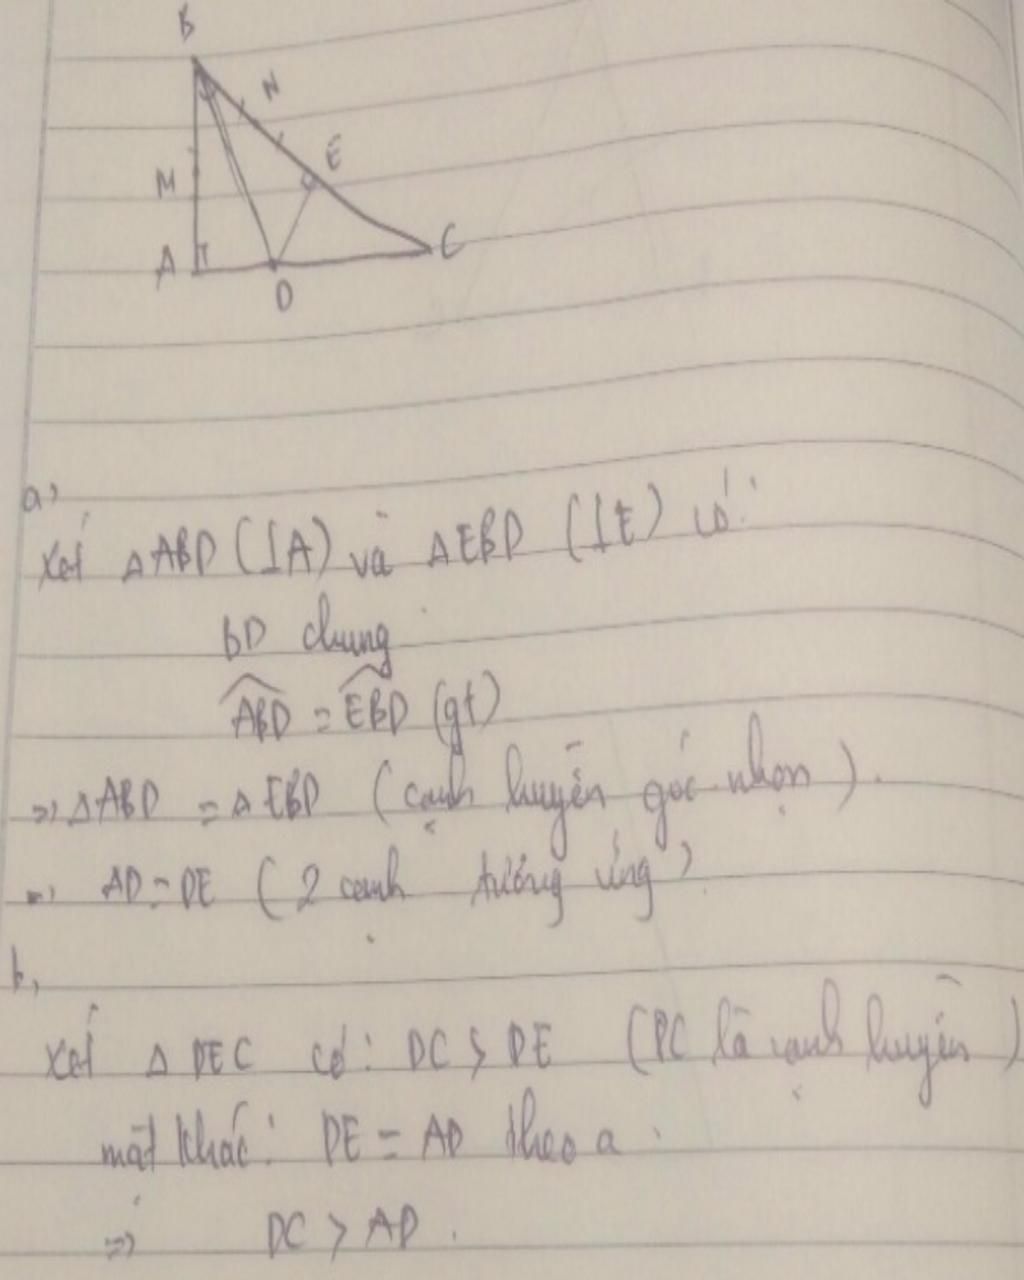 B
N
E
M
A
C
D
a,
Xét ΔABD (⊥A) và ΔEBD (⊥E) có:
BD chung
ABD = EBD (gt)
=> ΔABD = ΔEBD (cạnh huyền góc nhọn).
=> AD = DE (2 cạnh tướng ứng)
b,
Xét Δ DEC có: DC > DE (DC là cạnh huyền)
mặt khác: DE = AD theo a.
=> DC > AD.